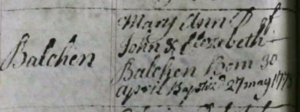 Mary Ann D. of
John & Elezebeth
Balchen
Balchen Born 30
April Baptiz'd 27 may 177